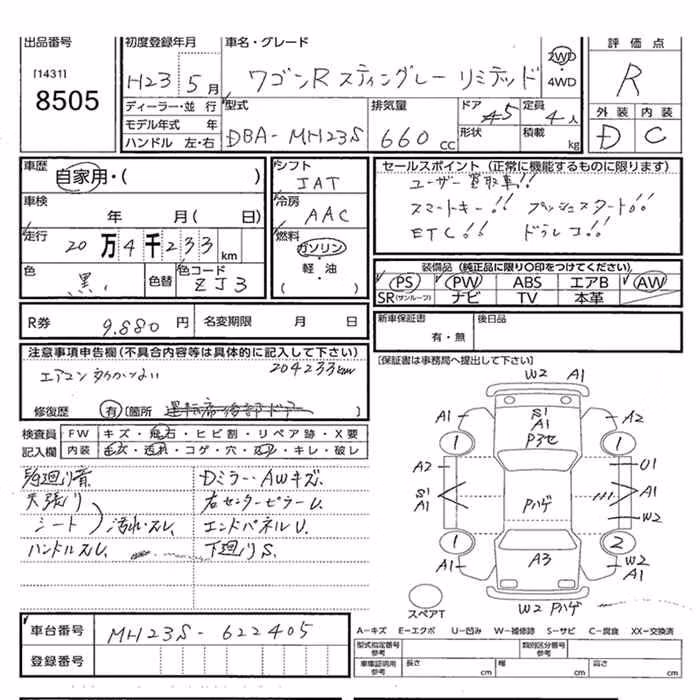 出品番号
[1431]
8505
初度登録年月
H23 5月
ディーラー・並 行
モデル年式 年
ハンドル 左・右
車名・グレード
ワゴンR スティングレー リミテッド
2WD
・
4WD
型式
DBA-MH23S
排気量
660cc
ドア
5
形状
定員
4人
積載
kg
評 価 点
R
外 装 内 装
D C
車歴
自家用・( )
車検
年 月( 日)
走行
20万4千233km
色
黒
色替
色コード
ZJ3
シフト
IAT
冷房
AAC
燃料
ガソリン
・
軽・油
( )
セールスポイント(正常に機能するものに限ります)
ユーザー買取車!!
スマートキー!! プッシュスタート!!
ETC!! ドラレコ!!
装備品(純正品に限り〇印をつけてください)
PS PW ABS エアB AW
SR(サンルーフ) ナビ TV 本革
R券
9.880円
名変期限 月 日
新車保証書
有・無
後日品
[保証書は事務局へ提出して下さい]
注意事項申告欄(不具合内容等は具体的に記入して下さい)
204233km
エアコン効かない
修復歴 有(箇所 運転席後部ドアー)
検査員 FW キズ・飛石・ヒビ割・リペア跡・X要
記入欄 内装 キズ・汚れ・コゲ・穴・スレ・キレ・破レ
Dミラー・AWキズ
天張り 右センターピラーU.
シート 汚れ・スレ エンドパネルU.
ハンドルスレ 下廻りS.
W2 A1
A1 S1 A1 A2
P3セ
1 1
A2 U1
S1 A1 Pハゲ A1
W2
1 2
A1 A3 W2 A1
スペアT
W2 Pハゲ
車台番号 MH23S-622405
登録番号
A-キズ E-エクボ U-凹み W-補修跡 S-サビ C-腐食 XX-交換済
型式指定番号 参考
類別区分番号 参考
車庫証明用 参考
長さ cm
幅 cm
高さ cm